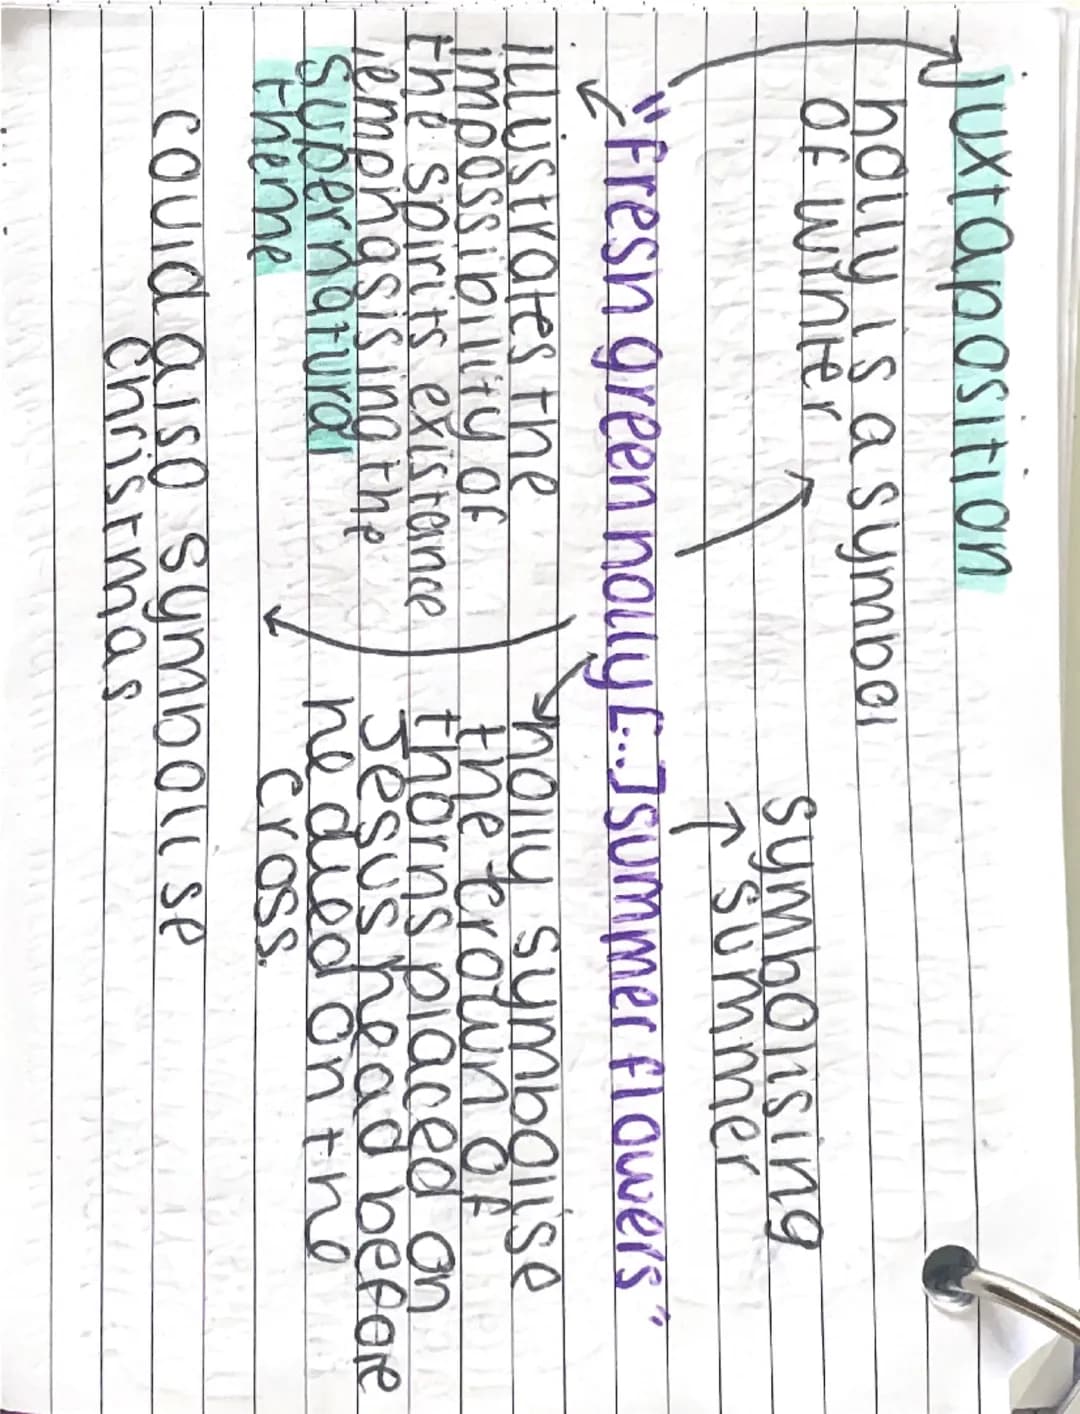 Juxtaposition
holly is a symbol
of winter
symbolising
summer
"Fresh green holly [...] summer flowers"
Illustrates the
impossibility of
the spirits existance
emphasising the
Supernatural
theme
holly symbolise
the crown of
thorns placed on
Jesus head before
he died on the
cross.
could also symbolise
christmas